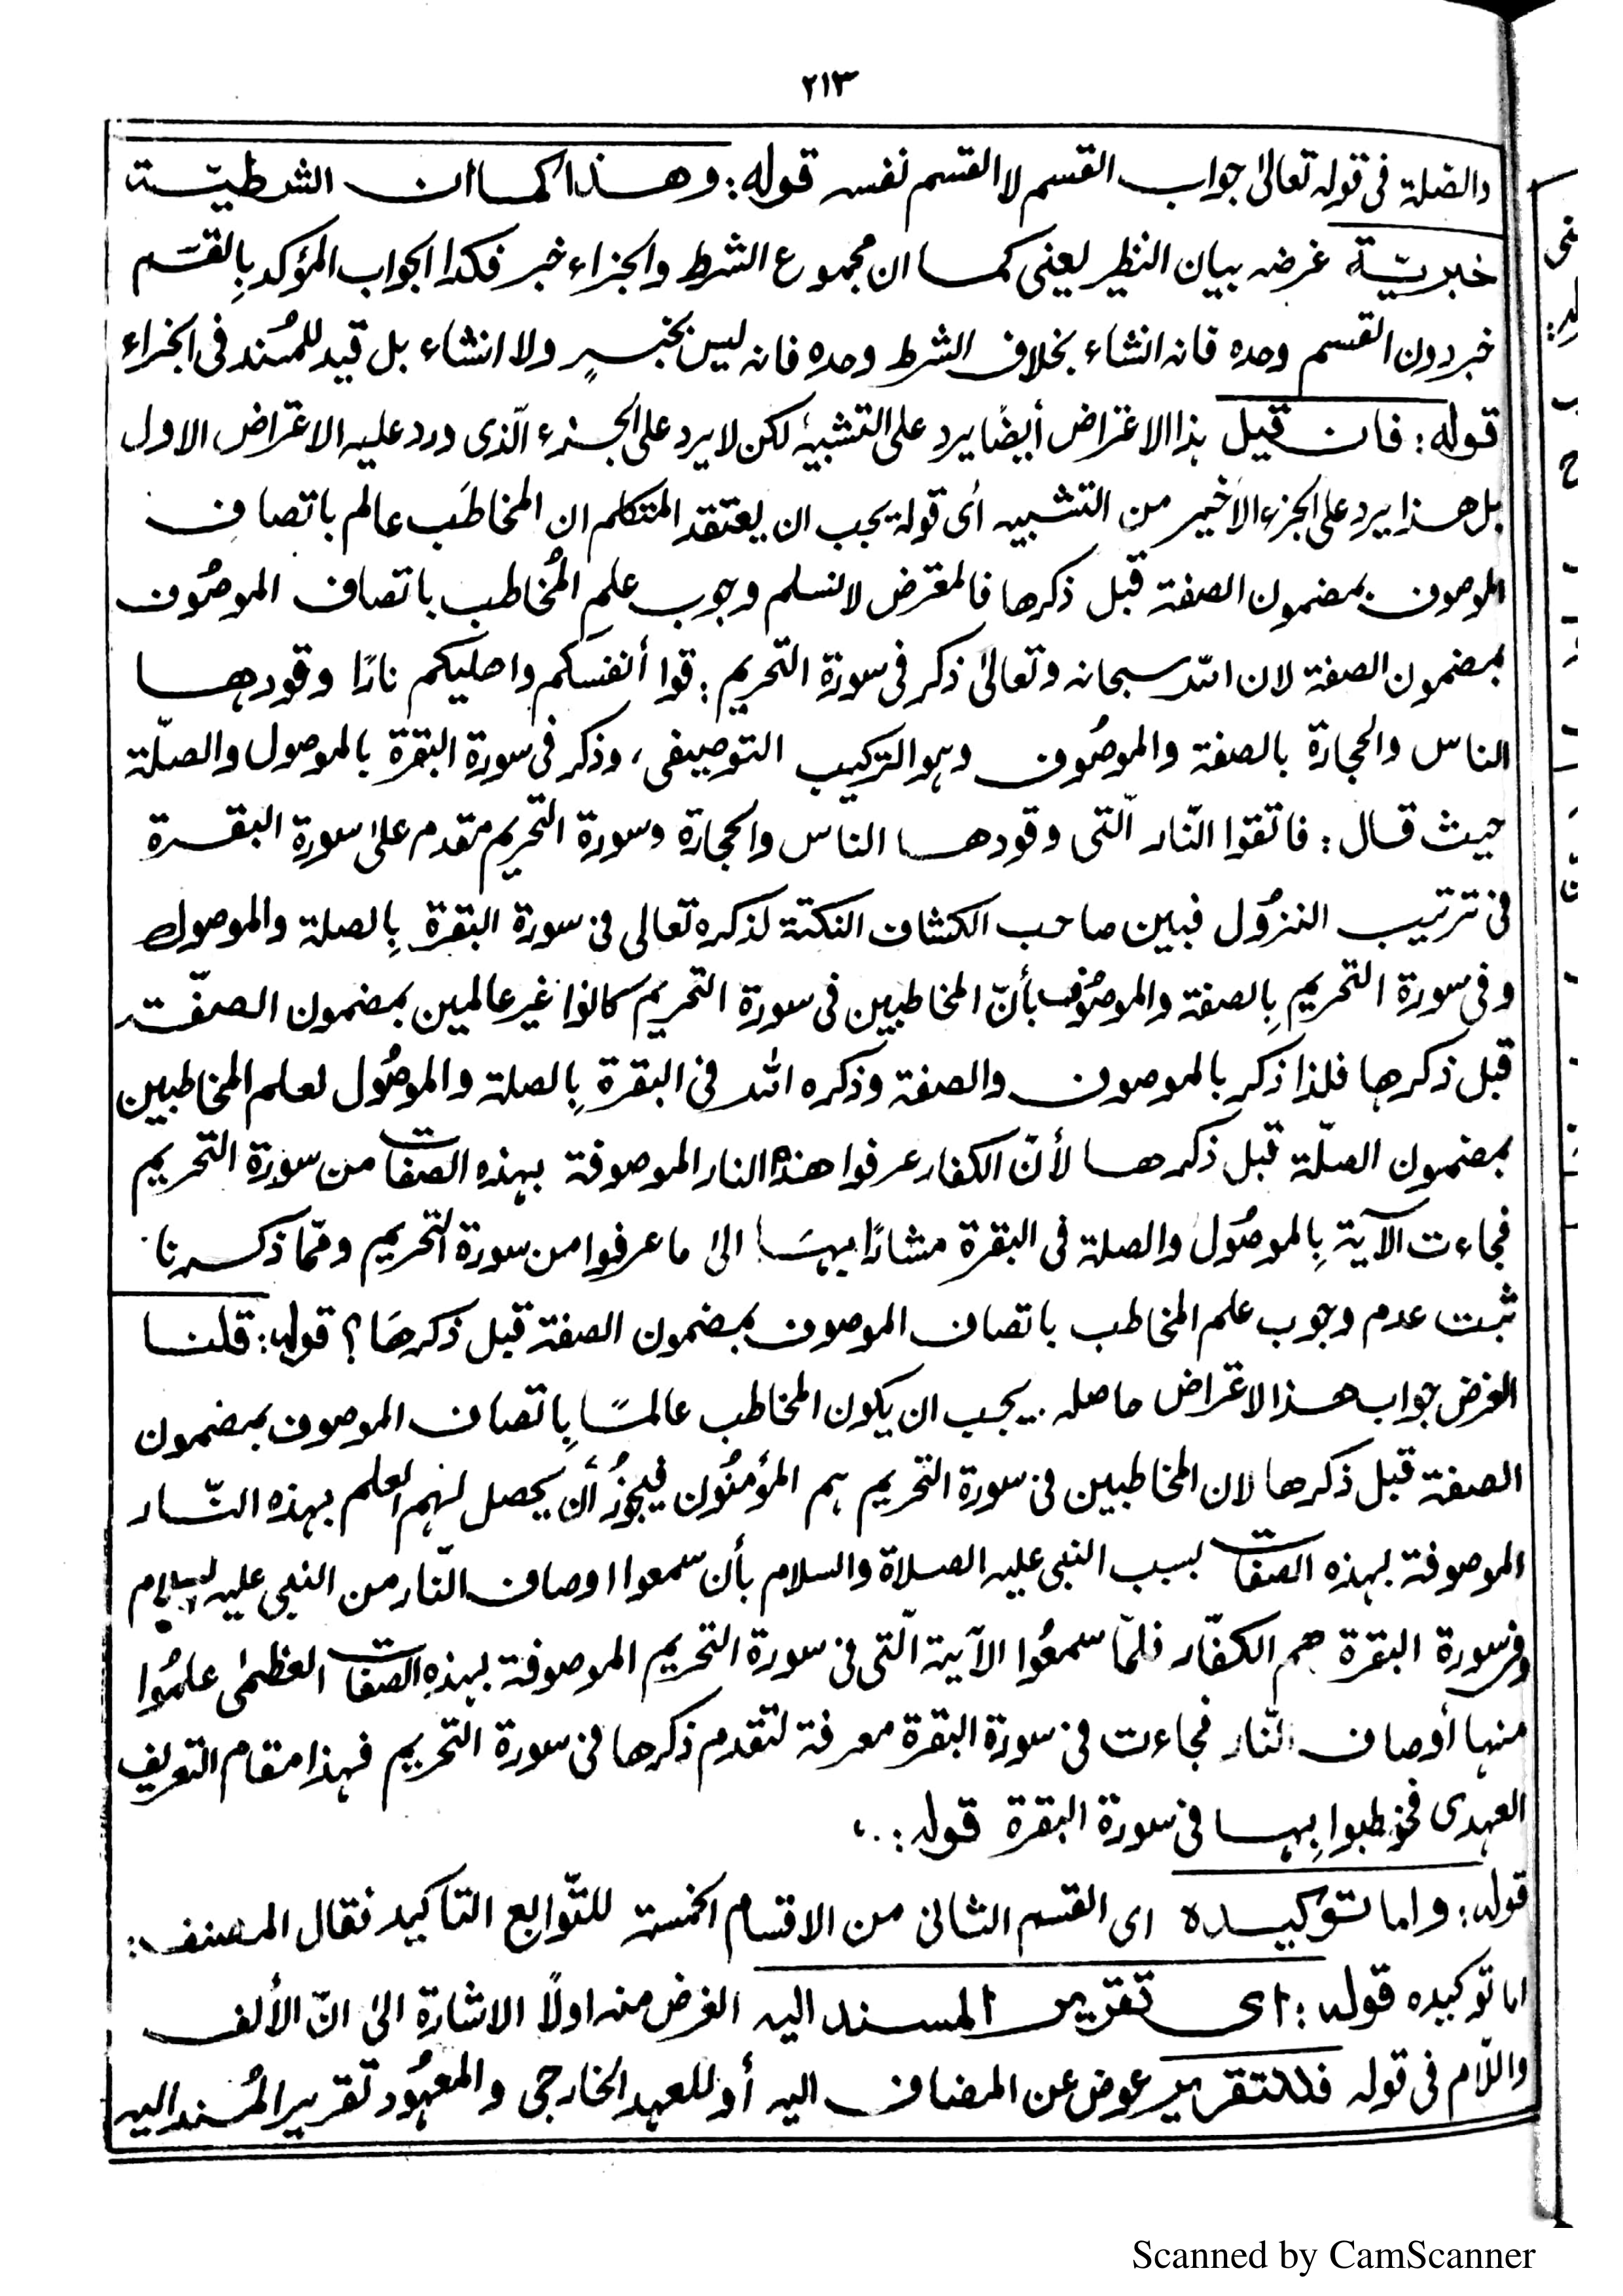 ٢١٣
والصلة فى قوله تعالىٰ جواب القسم لا القسم نفسه قوله: وهذا كما ان الشرطيّة
خبريّة غرضه بيان النظير يعنى كما ان مجموع الشرط والجزاء خبر فكذا الجواب المؤكد بِالقسَم
خبر دون القسم وحده فانه انشاء بخلاف الشرط وحده فانه ليس بخبرٍ ولا انشاء بل قيد للمُسند فى الجزاء
قوله: فان قيل هذا الاعتراض أيضًا يرد على التشبيه لكن لا يرد على الجزء الّذى ورد عليه الاعتراض الاول
بل هذا يرد على الجزء الأخير من التشبيه أى قوله يجب ان يعتقد المتكلم ان المخاطَب عالم باتصاف
الموصوف بمضمون الصفة قبل ذكرها فالمعترض لا نسلم وجوب علم المُخاطب باتصاف الموصُوف
بمضمون الصفة لان اللہ سبحانه وتعالىٰ ذكر فى سورة التحريم: قوا أنفسكم واهليكم نارًا وقودها
الناس والحجارة بالصفة والموصُوف وهو التركيب التوصيفى، وذكر فى سورة البقرة بالموصول والصلّة
حيث قال: فاتقوا النّار الّتى وقودها الناس والحجارة وسورة التحريم مقدم علىٰ سورة البقرة
فى ترتيب النزُول فبين صاحب الكشاف النكتة لذكره تعالى فى سورة البقرة بِالصلة والموصول
وفى سورة التحريم بِالصفة والموصُوف بأنّ المخاطبين فى سورة التحريم كانوا غير عالمين بمضمون الصفّة
قبل ذكرها فلذا ذكر بالموصوف والصفة وذكره اللہ فى البقرة بِالصلة والموصُول لعلم المخاطبين
بمضمون الصلّة قبل ذكرها لأنّ الكفار عرفوا هذه النار الموصوفة بهذه الصفات من سورة التحريم
فجاءت الآية بِالموصُول والصلة فى البقرة مشارًا بهَا الىٰ ما عرفوا من سورة التحريم وممّا ذكرنا
ثبت عدم وجوب علم المخاطب باتصاف الموصوف بمضمون الصفة قبل ذكرهَا؟ قوله: قلنا
الغرض جواب هذا الاعتراض حاصله يجب ان يكون المخاطب عالمًا بِاتصاف الموصوف بمضمون
الصفة قبل ذكرها لان المخاطبين فى سورة التحريم هم المؤمنُون فيجوزُ أن يحصل لهم العلم بهذه النّار
الموصوفة بهذه الصفات بسبب النبى عليه الصلاة والسلام بأن سمعوا اوصاف النّار من النبى عليه السلام
وفى سورة البقرة هم الكفّار فلمّا سمعُوا الآية الّتى فى سورة التحريم الموصوفة بهذِه الصفات العظمىٰ علمُوا
منها أوصاف النّار فجاءت فى سورة البقرة معرفة لتقدم ذكرها فى سورة التحريم فهذا مقام التعريف
العهدى فخوطبوا بِها فى سورة البقرة قوله:
قوله: واما توكيده اى القسم الثانى من الاقسام الخمسة للتّوابع التاكيد فقال المصنف:
اما توكيده قوله: اى تقرير المسند اليه الغرض منه اولًا الاشارة الىٰ انّ الألف
واللّام فى قوله فللتقرير عوض عن المضاف اليه أو للعهد الخارجى والمعهُود تقرير المُسند اليه
Scanned by CamScanner